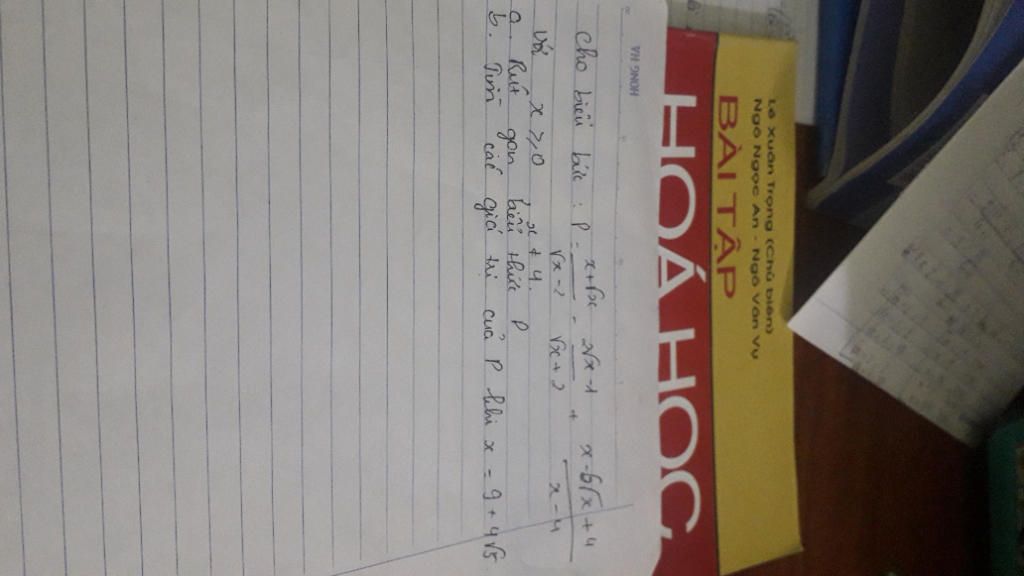 Lê Xuân Trọng (Chủ biên)
Ngô Ngọc An - Ngô Văn Vụ
BÀI TẬP
HOÁ HỌC
HONG HA
Cho biểu bức : P = \frac{x+\sqrt{x}}{\sqrt{x}-2} - \frac{2\sqrt{x}-1}{\sqrt{x}+2} + \frac{x-6\sqrt{x}+4}{x-4}
Với x ≥ 0 x ≠ 4.
a. Rút gọn biểu thức P
b. Tìm các giá trị của P khi x = 9 + 4√5